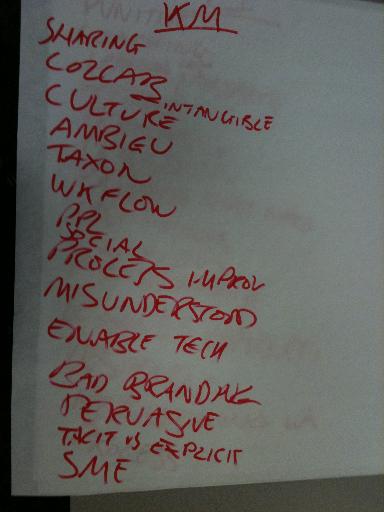 KM
SHARING
COLLAB
INTANGIBLE
CULTURE
AMBIGU
TAXON
WKFLOW
PPL
SPECIAL
PROCESS IMPROV
MISUNDERSTOOD
ENABLE TECH
BAD BRANDING
PERVASIVE
TACIT VS EXPLICIT
SME